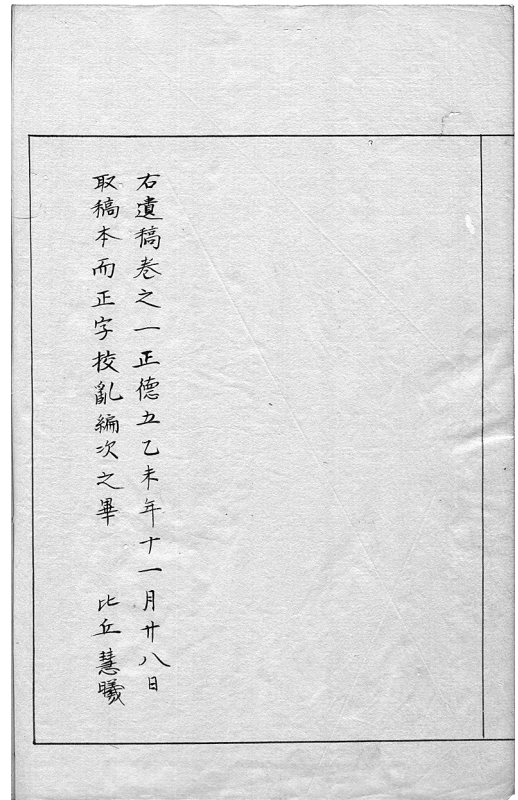 右遺稿卷之一正德五乙未年十一月廿八日
取稿本而正字挍亂編次之畢　比丘慧曦